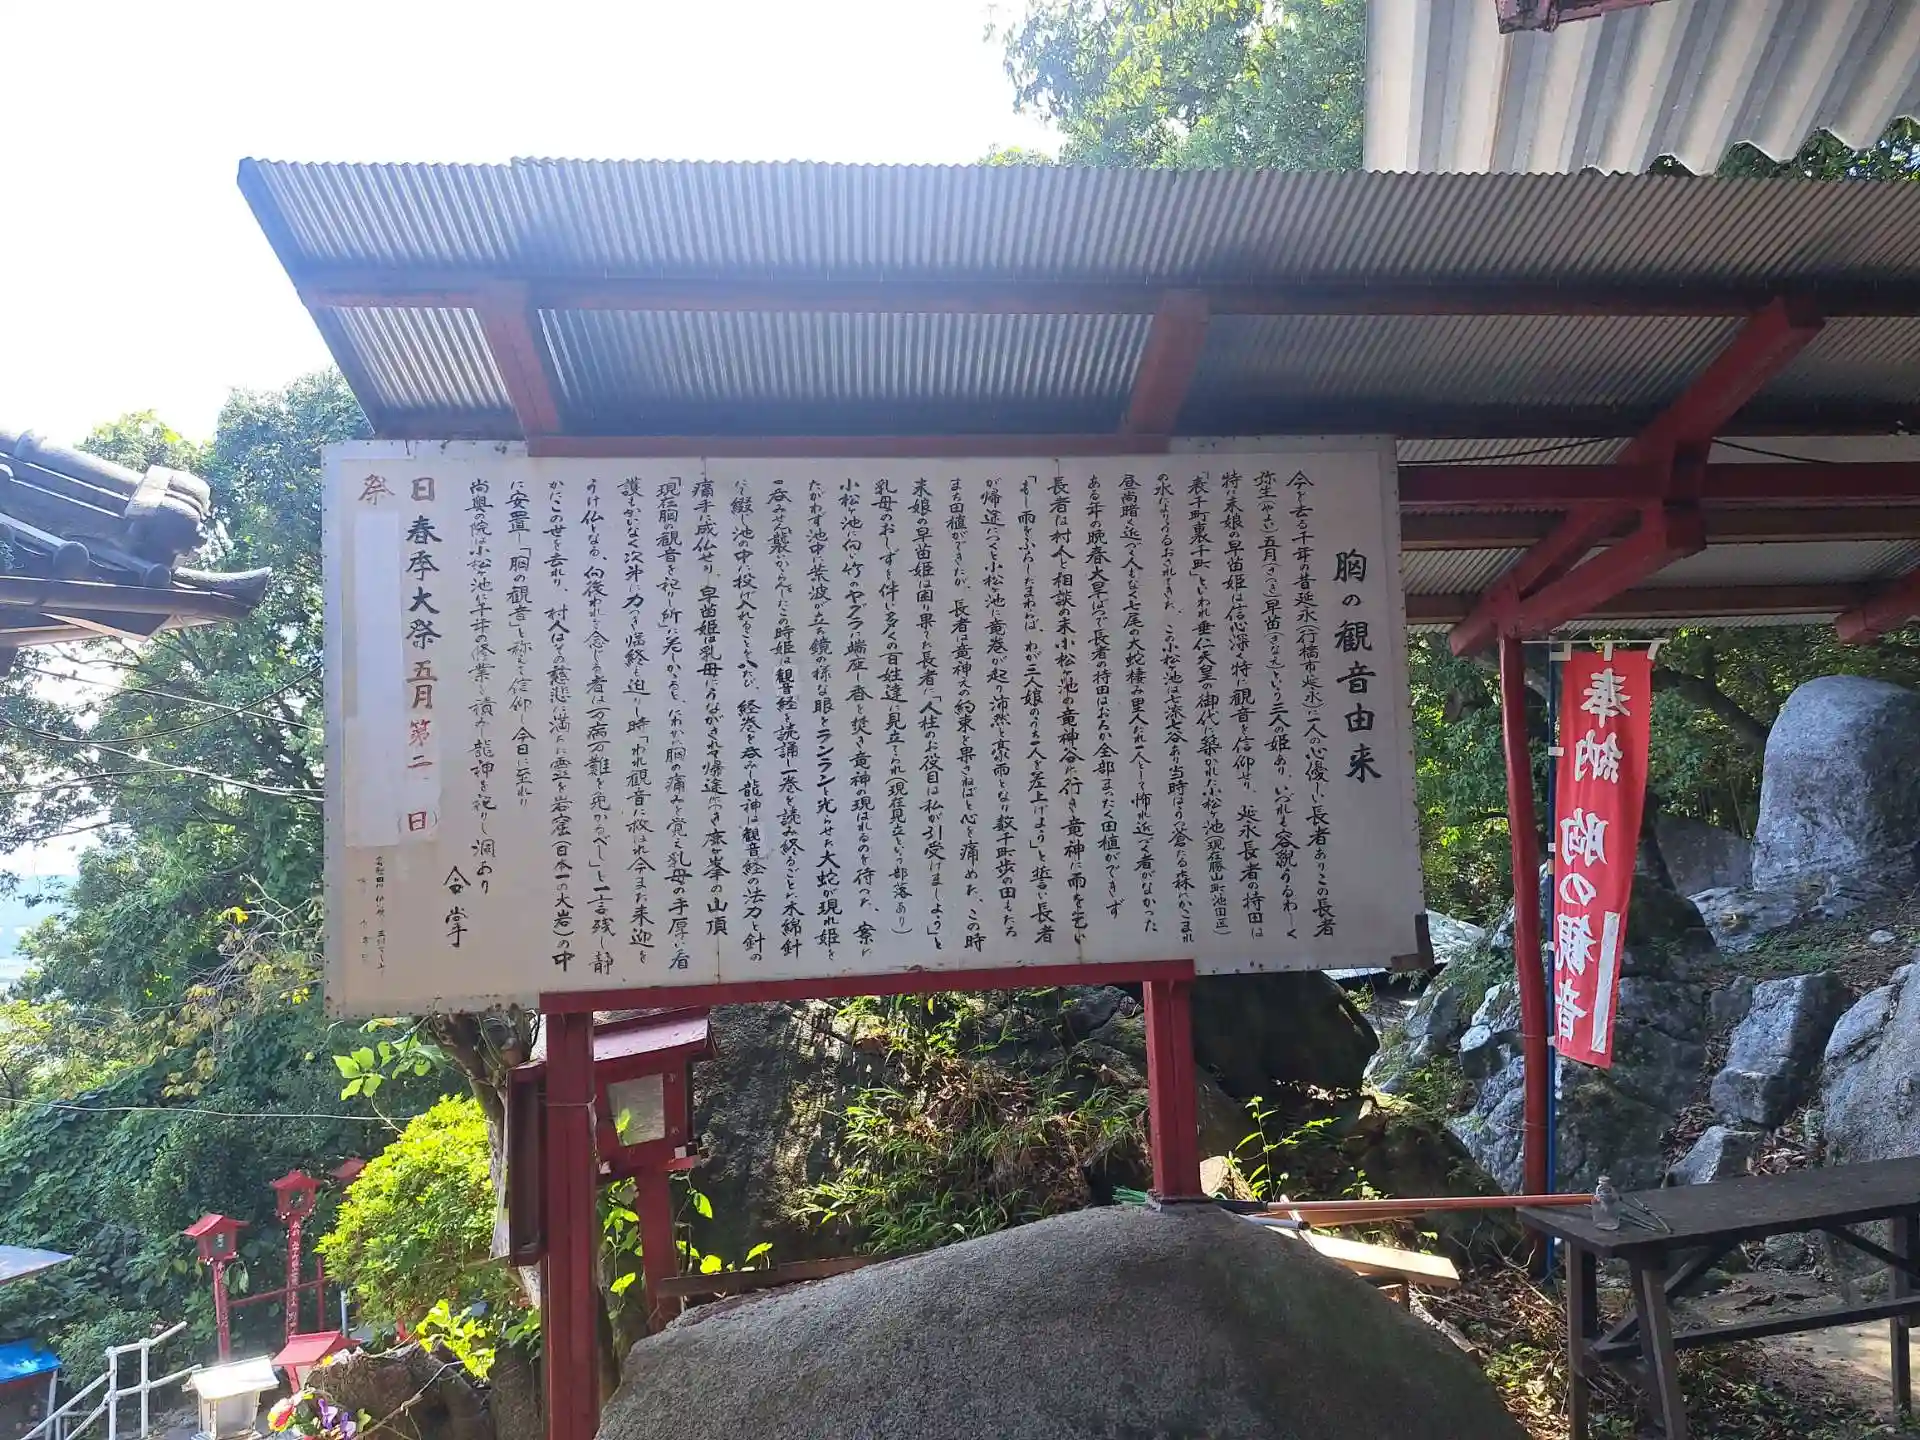 胸の観音由来
今を去る千年の昔延永(行橋市延永)に一人の心優しい長者ありこの長者
弥生(やよい)五月(さつき)早苗(さなえ)という三人の姫あり、いづれも容貌うるわしく
特に末娘の早苗姫は信心深く特に観音を信仰せり、延永長者の持田は
「表千町裏千町」といわれ垂仁天皇の御代に築かれた小松ヶ池(現在勝山町池田区)
の水によりうるおされてきた、この小松ヶ池は七添七谷あり当時はうっ蒼たる森にかこまれ
昼尚暗く近づく人もなく七尾の大蛇棲み里人だれ一人として怖れ近づく者がなかった
ある年の晩春大旱ばつで長者の持田はおろか全部まったく田植ができず
長者は村人と相談の末小松ヶ池の竜神谷に行き竜神に雨を乞い
「もし雨をふらしたまわねば、わが三人娘のうち一人を差上げまよう」と誓い長者
が帰途につくと小松ヶ池に竜巻が起り沛然と豪雨となり数千町歩の田もたち
まち田植ができたが、長者は竜神えの約束を果さねばと心を痛めた、この時
末娘の早苗姫は困り果てた長者に「人柱のお役目は私が引受けましよう」と
乳母のおしずを伴い多くの百姓達に見立てられ(現在見立という部落あり)
小松ヶ池に向い竹のヤグラに端座し香を焚き竜神の現はれるのを待った、案に
たがわず池中に紫波が立ち鏡の様な眼をランランと光らせた大蛇が現れ姫を
一呑みせん襲いかからんとたこの時姫は観音経を読誦し一巻を読み終るごとに木綿針
にて綴し池の中に投げ入れることを八たび、経巻を呑みし龍神は観音経の法力と針の
痛手に成仏せり、早苗姫は乳母にうながされて帰途につき鹿ヶ峯の山頂
「現在胸の観音を祀りし所」に差しかかると、にわかに胸の痛みを覚え乳母の手厚い看
護もかいなく次第に力つき臨終も迫りし時「われ観音に救はれ今また来迎を
うけ仏になる、向後われを念じる者は万病万難を免かるべし」と一言残し静
かにこの世を去れり、村人はその慈悲に満ちた霊を岩窟(日本一の大岩)の中
に安置し「胸の観音」と称えて信仰し今日に至れり
尚奥の院は小松ヶ池に千年の修業を積みし龍神を祀りし洞あり
合掌
日春季大祭 五月第二(日)
祭
奉納 胸の観音